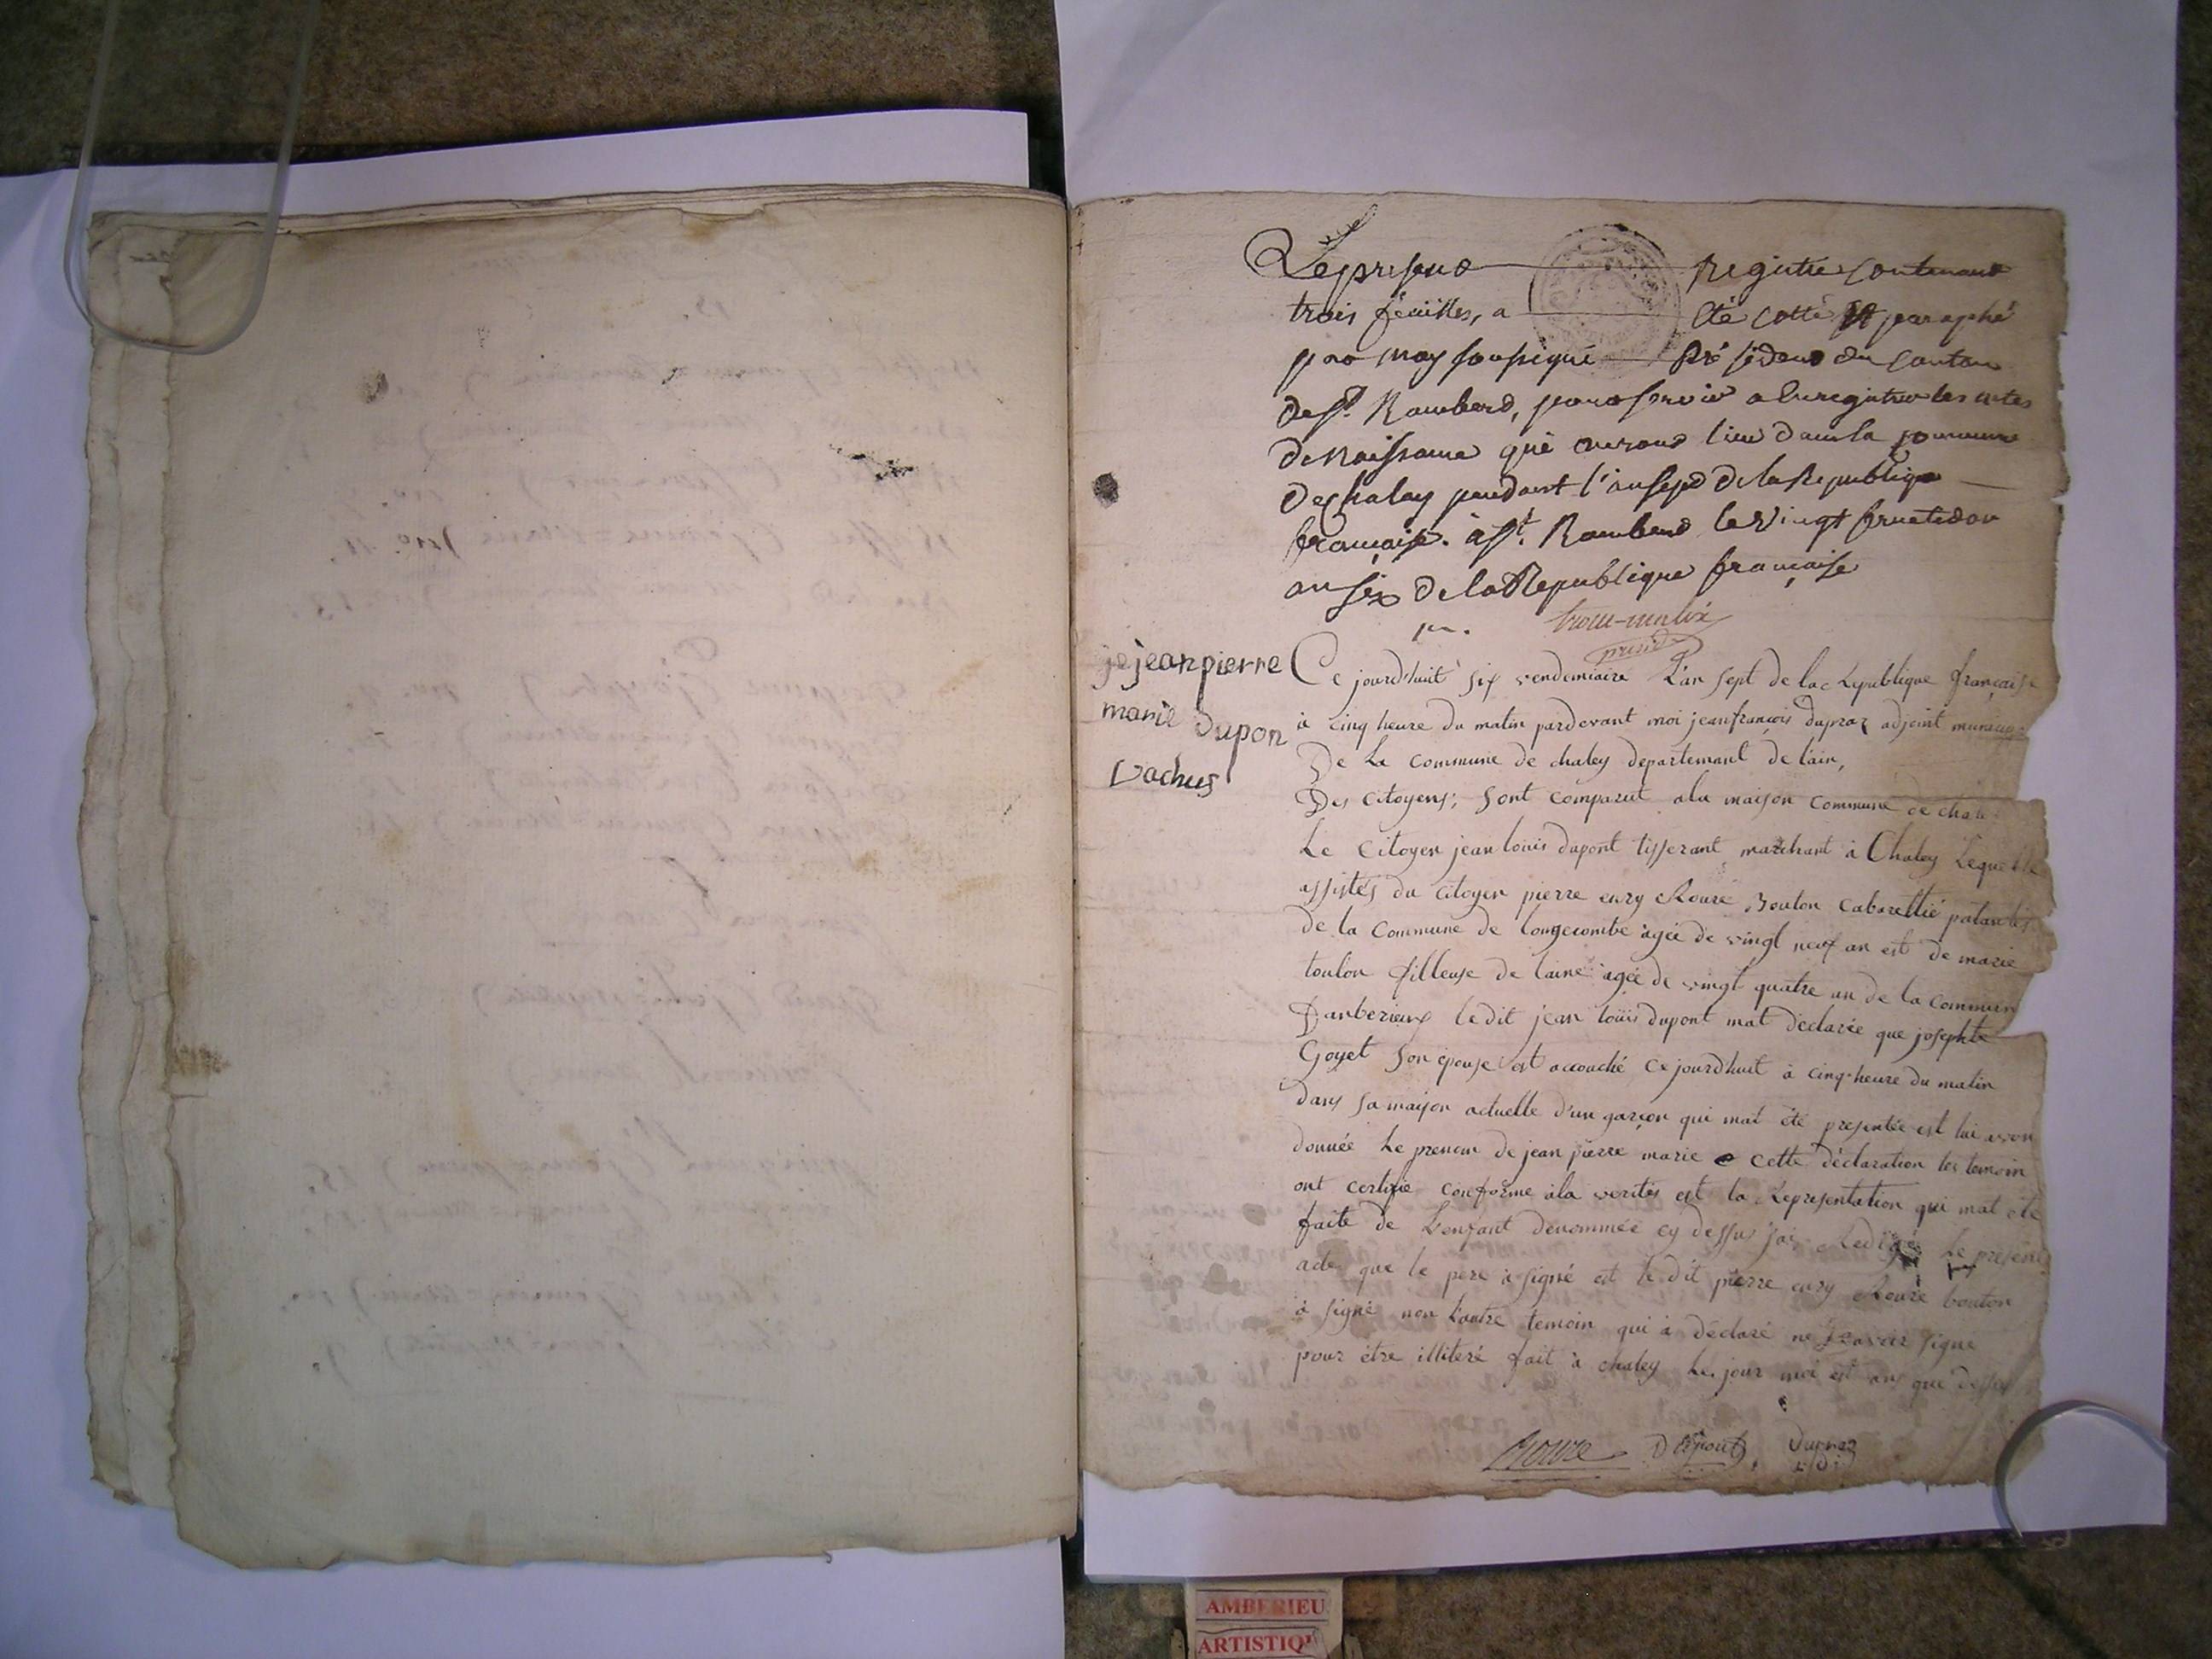 Le present registre contenant
trois feuilles, a été cotté et paraphé
par moy soussigné président du canton
de st. Rambert, pour servir a enregistrer les actes
de Naissance qui auront lieu dans la commune
de chaley pendant l'an sept de la Republique
francaise. à st. Rambert le vingt fructidor
an six de la Republique francaise
presid
jeanpierre
marie dupon
vachus
Ce jourd'huit six vendemiaire L'an sept de la Republique française
à cinq heure du matin pardevant moi jeanfrançois dupraz adjoint municip
De La Commune de chaley departement de l'ain,
Des Citoyens; sont comparut ala maison commune de chale
Le Citoyen jean louis dupont tisserant marchant à Chaley Lequelle
assistés du citoyen pierre enry Roure Bouton Cabarettié patantés
de la Commune de longecombe agée de vingt neuf an est de marie
toulon filleuse de laine agée de vingt quatre an de la commune
Danberieux ledit jean louis dupont mat declarée que josephte
Goyet son epouse est accouché ce jourdhuit à cinq heure du matin
dans sa maison actuelle d'un garçon qui mat été presentée est lui avon
donnée Le prenom de jean pierre marie cette déclaration les temoin
ont certifie conforme ala verités est la Representation qui mat été
faite de L'enfant denommée cy dessus jai Redigés Le present
acte que le pere à signé est le dit pierre enry Roure bouton
à signé non l'autre temoin qui à déclaré ne sçavoir signe
pour être illiteré fait à chaley Les jour moi est ans que dessus
Roure Dupont Dupraz
adj
AMBERIEU
ARTISTIQU